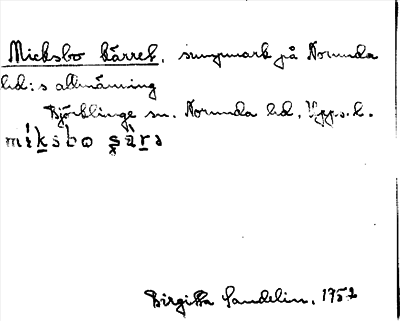 Micksbo kärret, sumpmark på Norunda
hd:s allmänning
Björklinge sn. Norunda hd, Upps. l.
miksbo
Birgitta Sandelin, 1952